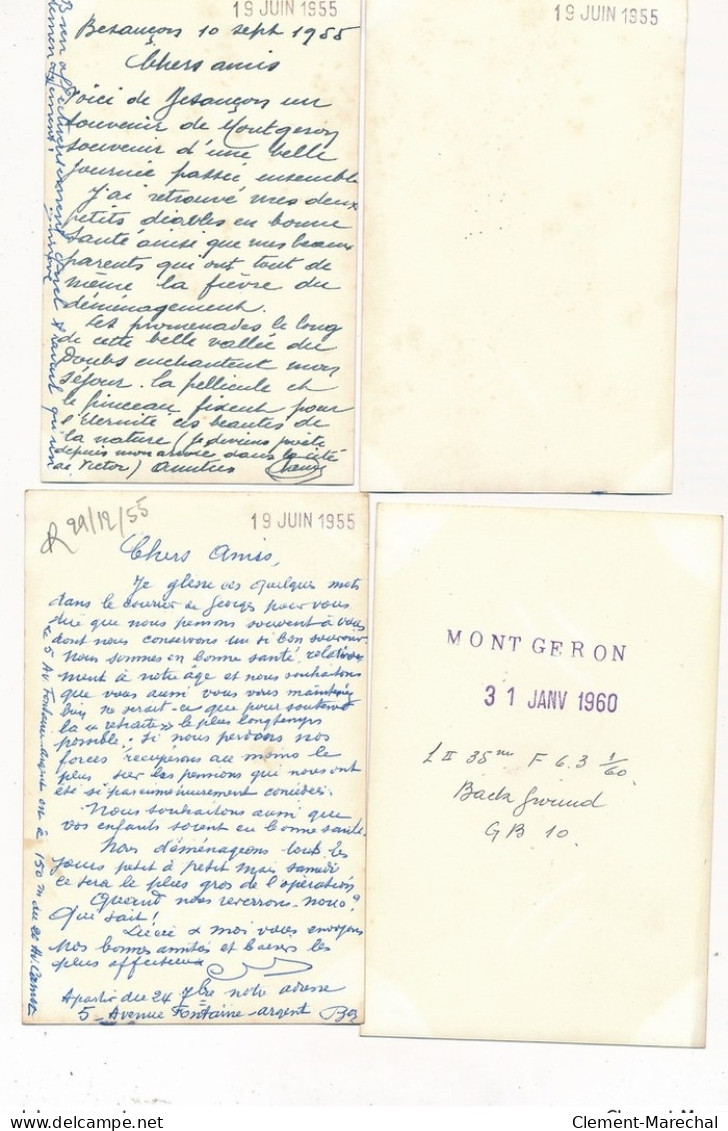 19 JUIN 1955
Besançon 10 sept 1955
Chers amis
Voici de Besançon un
souvenir de Montgeron
souvenir d'une belle
journée passée ensemble
J'ai retrouvé mes deux
petits diables en bonne
santé ainsi que mes beaux
parents qui ont tout de
même la fièvre du
déménagement.
Les promenades le long
de cette belle vallée du
Doubs enchantent mon
séjour. La pellicule et
le pinceau fixent pour
l'éternité ces beautés de
la nature (je deviens poète
depuis mon arrivée dans la cité
de Victor) Amitiés
19 JUIN 1955
R 29/12/55
19 JUIN 1955
Chers Amis,
Je glisse ces quelques mots
dans le courrier de Georges pour vous
dire que nous pensons souvent à vous
dont nous conservons un si bon souvenir.
Nous sommes en bonne santé, relative-
ment à notre âge et nous souhaitons
que vous aussi vous vous mainteniez
bien, ne serait-ce que pour soutenir
la "retraite" le plus longtemps
possible. Si nous perdons nos
forces récupérons au moins le
plus sur les pensions que nous ont
été si parcimonieusement concédées.
Nous souhaitons aussi que
vos enfants soient en bonne santé.
Nous déménageons tous les
jours petit à petit mais samedi
ce sera le plus gros de l'opération
Quand nous reverrons-nous?
Qui sait!
Lucie & moi vous envoyons
nos bonnes amitiés et baisers les
plus affectueux
A partir du 24 7bre notre adresse
5 Avenue Fontaine-argent Bon
le 5 Av. Fontaine-Argent est à 150 m du 20 Av. Carnot
MONTGERON
31 JANV 1960
F 6.3 1/60
Back Ground
GB 10.
Clement-Marechal